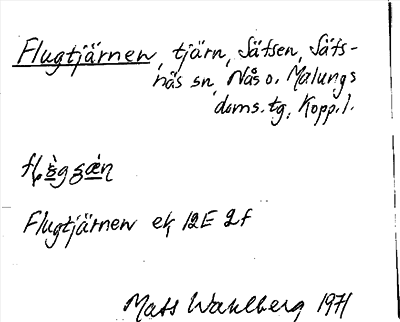 Flugtjärnen, tjärn, Säfsen, Säfs-
näs sn, Nås o. Malungs
doms.tg, Kopp.l.
Flugtjärnen ek 12E 2f
Mats Wahlberg 1971